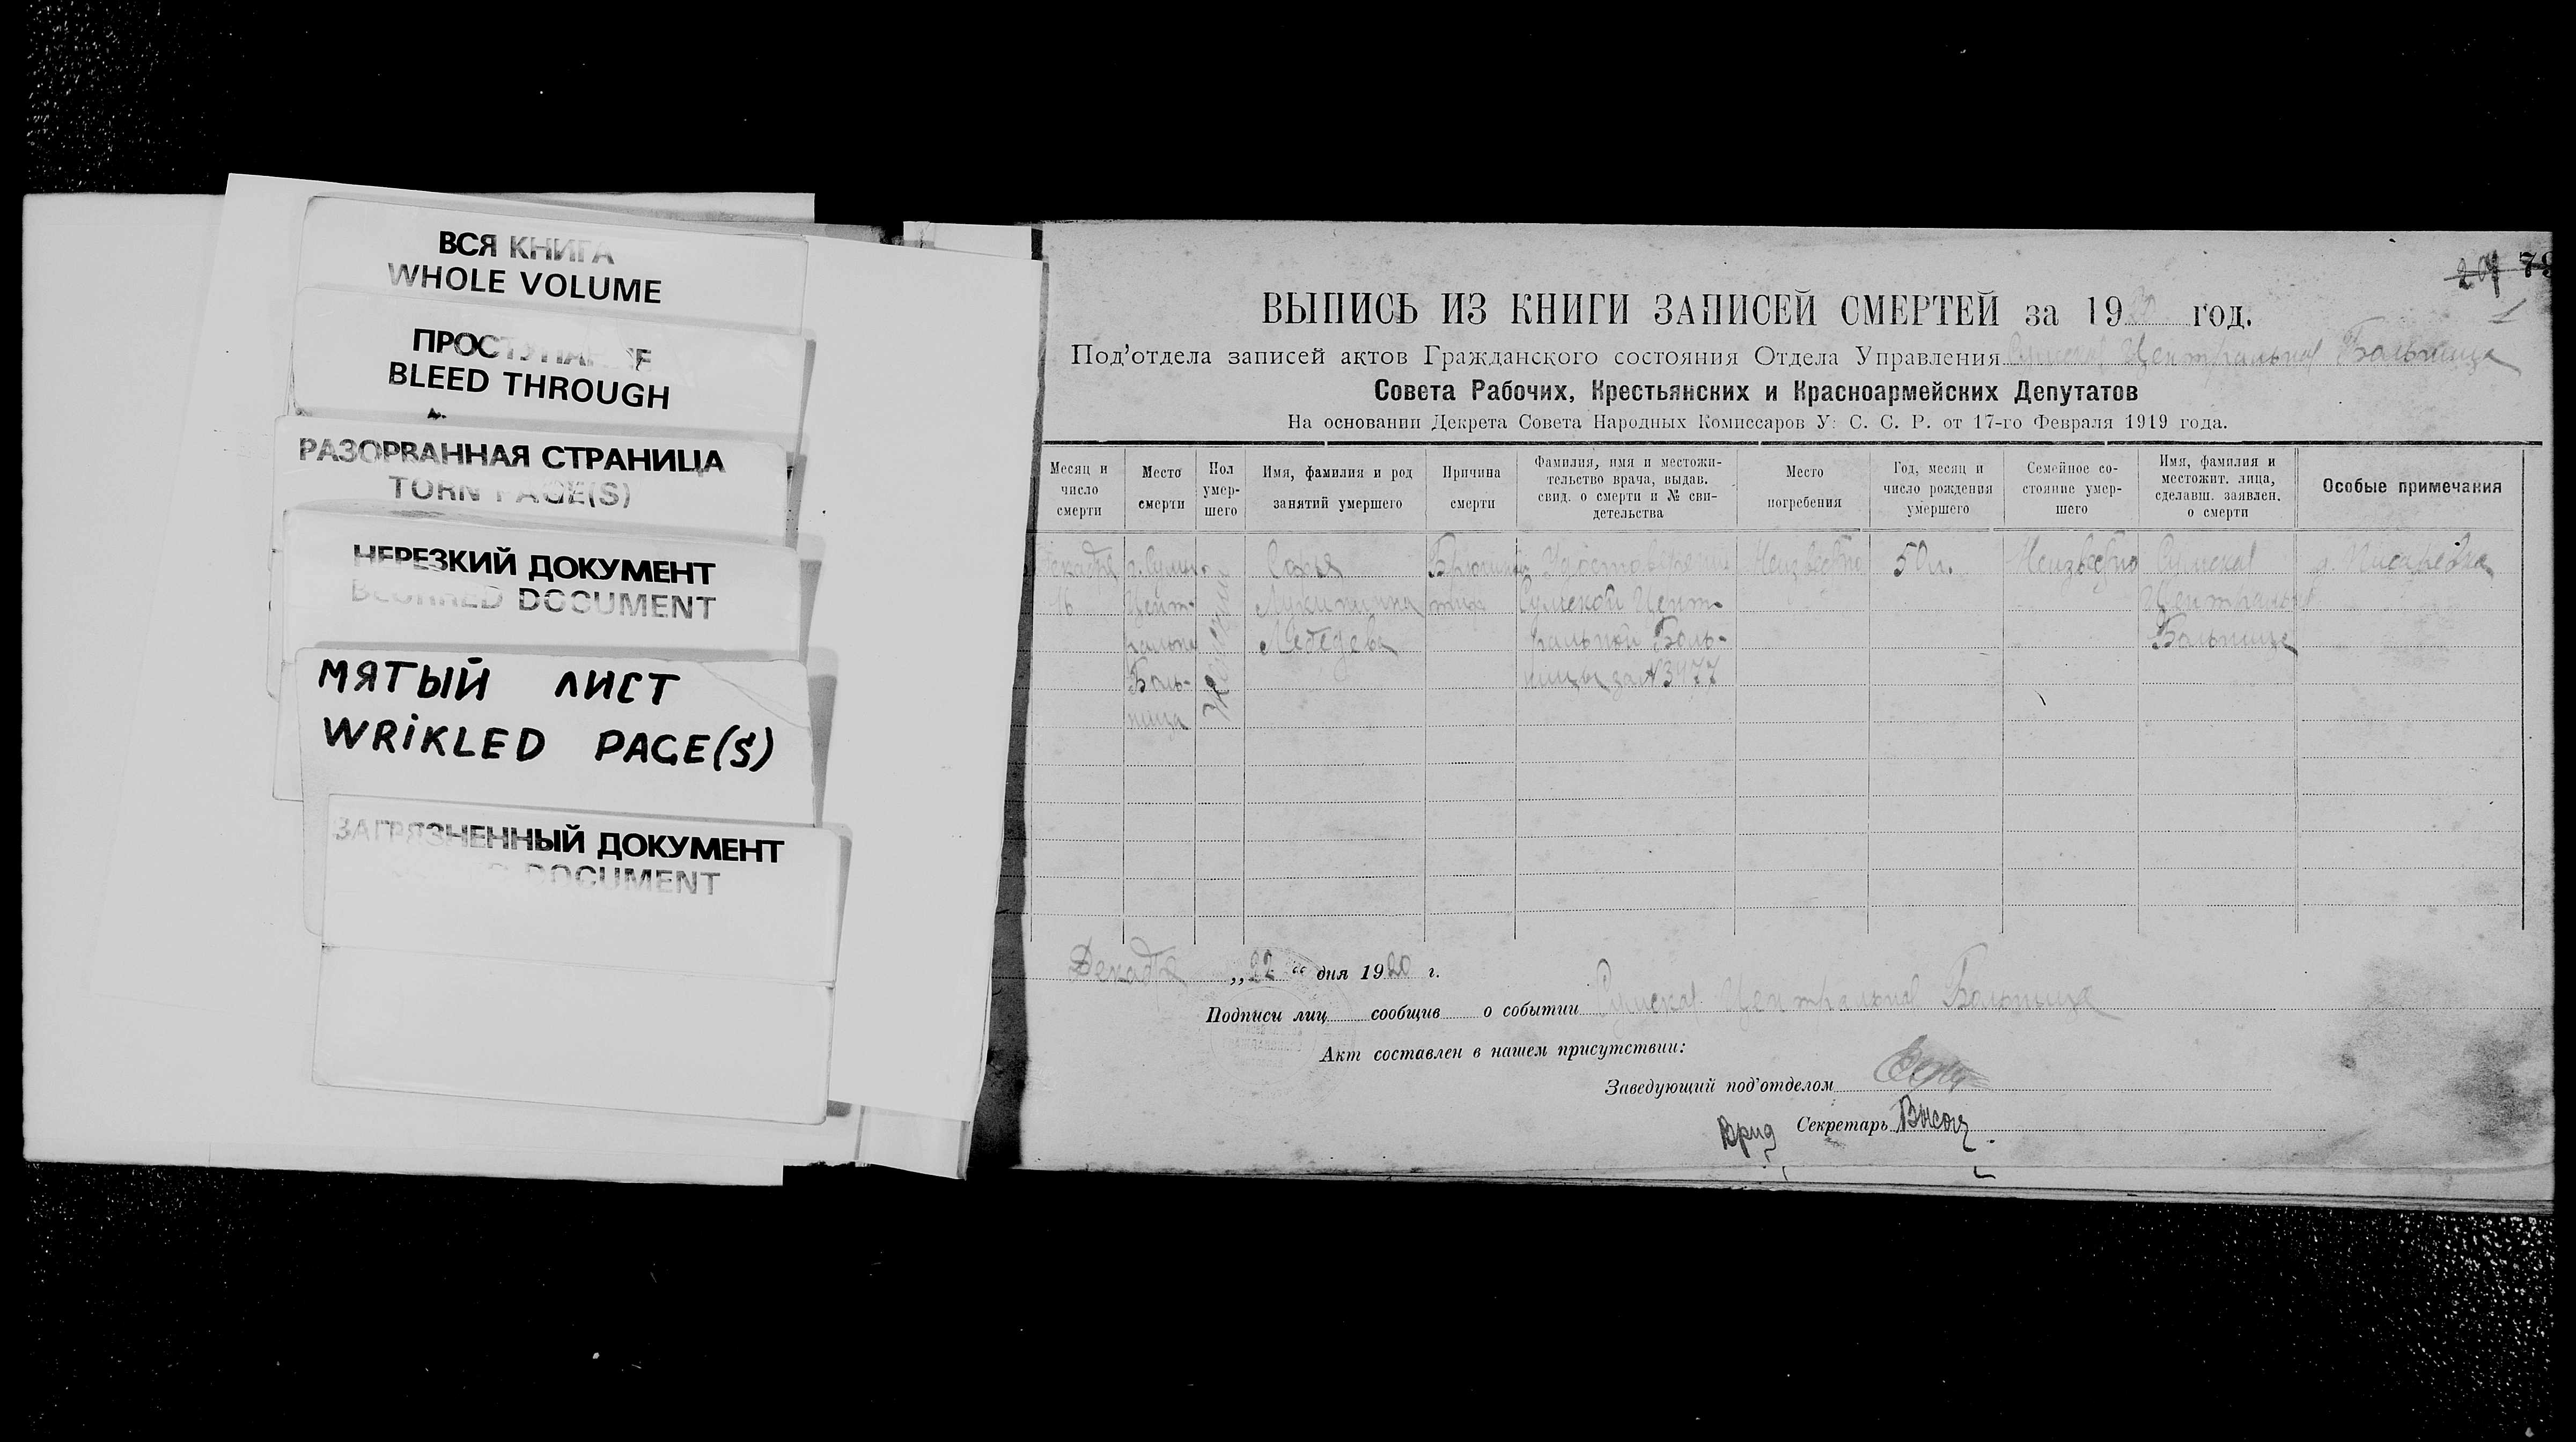 ВСЯ КНИГА
WHOLE VOLUME
ПРОСТУПАНИЕ
BLEED THROUGH
РАЗОРВАННАЯ СТРАНИЦА
TORN PAGE(S)
НЕРЕЗКИЙ ДОКУМЕНТ
BLURRED DOCUMENT
МЯТЫЙ ЛИСТ
WRiKLED PAGE(S)
ЗАГРЯЗНЕННЫЙ ДОКУМЕНТ
DOCUMENT
ВЫПИСЬ ИЗ КНИГИ ЗАПИСЕЙ СМЕРТЕЙ за 1920 год.
Под'отдела записей актов Гражданского состояния Отдела Управления Сумская Центральная Больница
Совета Рабочих, Крестьянских и Красноармейских Депутатов
На основании Декрета Совета Народных Комиссаров У: С. С. Р. от 17-го Февраля 1919 года.
Месяц и число смерти
Место смерти
Пол умер-шего
Имя, фамилия и род занятий умершего
Причина смерти
Фамилия, имя и местожи-тельство врача, выдав. свид. о смерти и № сви-детельства
Место погребения
Год, месяц и число рождения умершего
Семейное со-стояние умер-шего
Имя, фамилия и местожит. лица, сделавш. заявлен. о смерти
Особые примечания
Декабря 16
г. Сумы Цент-ральна Боль-ница
Женский
Софья Лебедева
Удостоверение Сумской Цент-ральной Боль-ницы за №3477
Неизвестно
50 л.
Неизвестно
Сумская Центральная Больница
Декабря „22“ дня 1920 г.
Подписи лиц сообщив о событии Сумская Центральная Больница
Акт составлен в нашем присутствии:
Заведующий под'отделом
Врид Секретарь